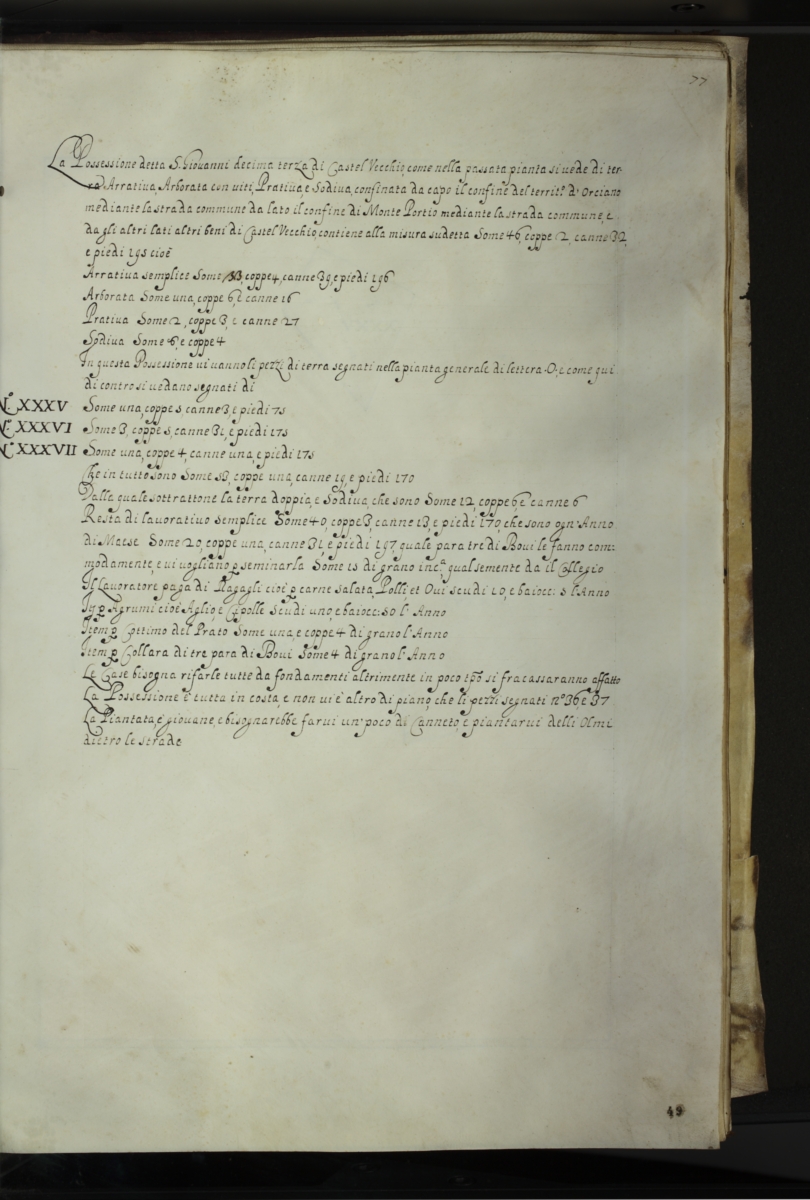 77
La Possessione detta S. Giouanni decima terza di Castel Vecchio, come nella passata pianta si uede di ter-
ra Arratiua Arborata con uiti, Pratiua, e Sodiua, confinata da capo il confine del territ.º d'Orciano
mediante la strada commune da lato il confine di Monte Portio mediante la strada commune, e
da gli altri lati altri beni di Castel Vecchio, contiene alla misura sudetta Some 46, coppe 2, canne 32,
e piedi 195 cioè
Arratiua semplice Some 38, coppe 4, canne 39, e piedi 196
Arborata Some una, coppe 6, e canne 16
Pratiua Some 2, coppe 3, e canne 27
Sodiua Some 6, e coppe 4
In questa Possessione ui uanno li pezzi di terra segnati nella pianta generale di lettera O, e come qui
di contro si uedano segnati di
N.º XXXV Some una, coppe 5, canne 3, e piedi 75
N.º XXXVI Some 3, coppe 5, canne 31, e piedi 175
N.º XXXVII Some una, coppe 4, canne una, e piedi 175
Che in tutto sono Some 53, coppe una, canne 19, e piedi 170
Dalla quale sottrattone la terra doppia, e Sodiua, che sono Some 12, coppe 6 e canne 6
Resta di lauoratiuo semplice Some 40, coppe 3, canne 13, e piedi 170, che sono ogn'Anno
di Maese Some 20, coppe una, canne 31, e piedi 197 quale para tre di Boui le fanno com:
modamente, e ui uogliano p seminarla Some 15 di grano inc.ª qual semente da il Collegio
Il Lauoratore paga di Plagagli cioè p carne salata, Polli, et Oui scudi 10, e baiocc: 5 l'Anno
It p Agrumi cioè Aglio, e Cipolle Scudi uno, e baiocc: 50 l'Anno
Item p Cottimo del Prato Some una, e coppe 4 di grano l'Anno
Item p Collara di tre para di Boui Some 4 di grano l'Anno
Le Case bisogna rifarle tutte da fondamenti altrimente in poco tpo si fracassaranno affatto
La Possessione è tutta in costa, e non ui è altro di piano, che li pezzi segnati nº 36, e 37
La Piantata, è giouane, e bisognarebbe farui un' poco di Canneto, e piantarui delli Olmi
dietro le strade
49